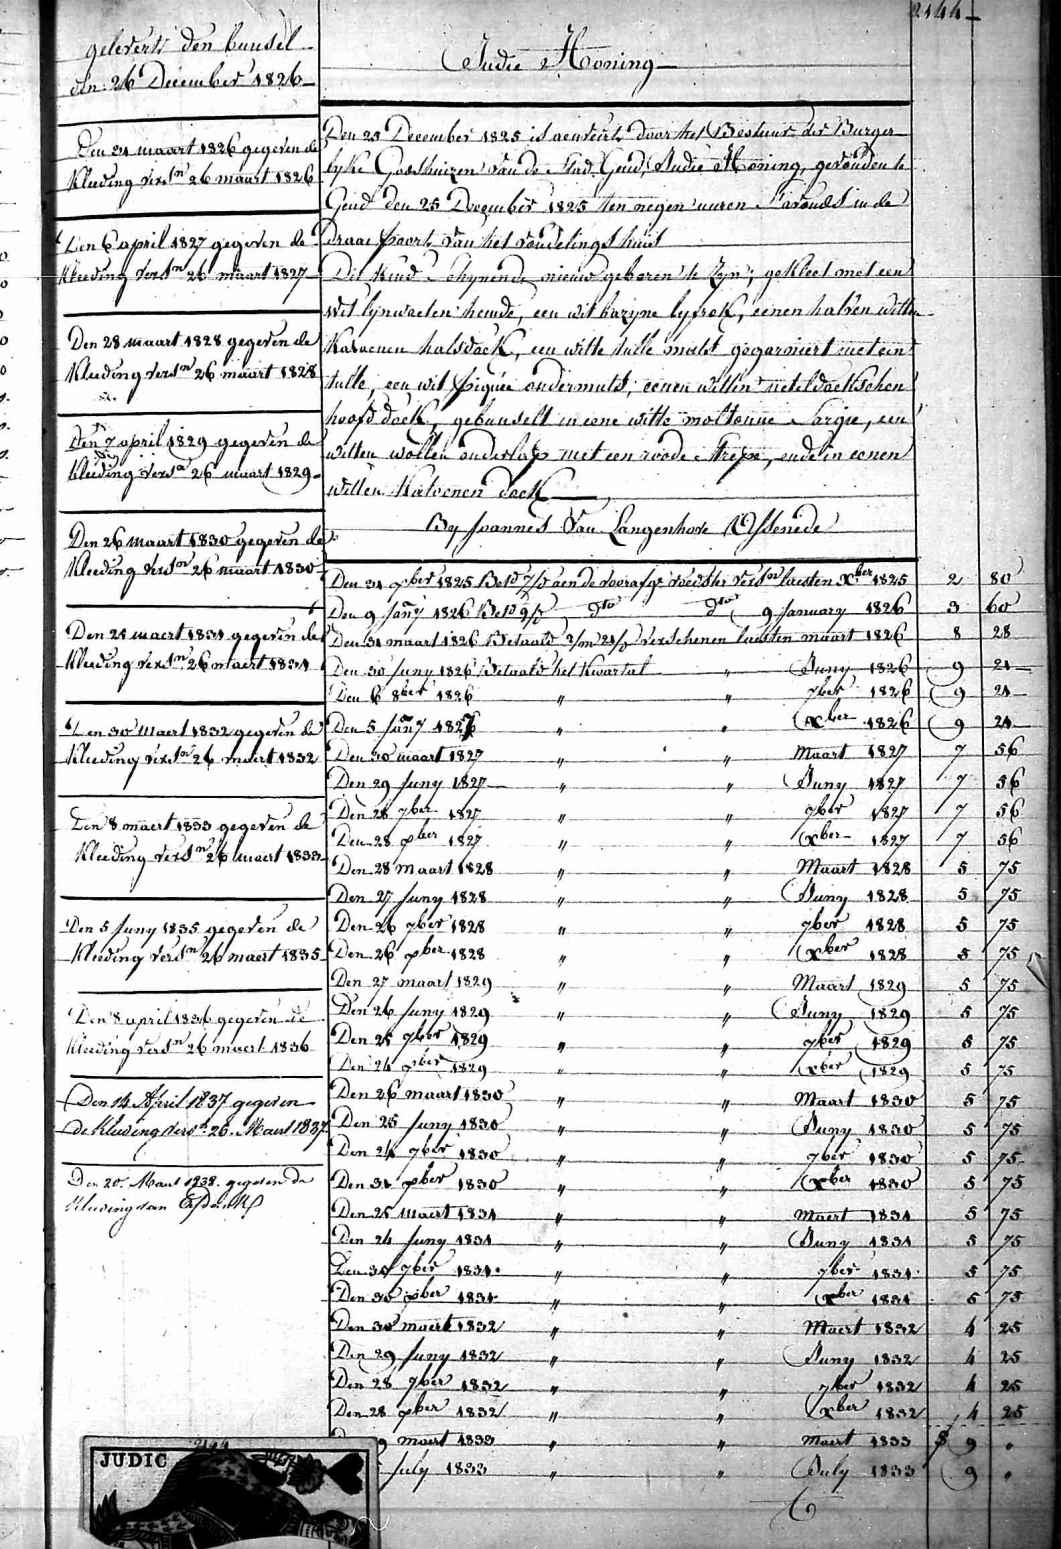 2144
gelevert den bunsel
den 26 December 1826
Den 24 maart 1826 gegeven de
kleeding versn 26 maart 1826
Den 6 april 1827 gegeven de
kleeding versn 26 maart 1827
Den 28 maart 1828 gegeven de
kleeding versn 26 maart 1828
Den 7 april 1829 gegeven de
kleeding versn 26 maart 1829
Den 26 maart 1830 gegeven de
kleeding versn 26 maart 1830
Den 25 maert 1831 gegeven de
kleeding versn 26 maert 1831
Den 30 maert 1832 gegeven de
kleeding versn 26 maert 1832
Den 8 maert 1833 gegeven de
kleeding versn 26 maert 1833
Den 5 Juny 1835 gegeven de
kleeding versn 26 maert 1835
Den 8 april 1836 gegeven de
kleeding versn 26 maert 1836
Den 14 April 1837 gegeven
de kleeding versn 26 Maert 1837
Den 20 Maert 1838 gegeven de
kleeding van
Judie Honing
Den 25 December 1825 is aenveirt door het Bestuur der Burger
lyke Godshuizen van de stad Gend, Judie Honing, gevonden te
Gend den 25 December 1825 ten negen uuren s'avonds in de
Draai poort van het vondelings huis
Dit kind schynende nieuw geboren te zyn; gekleet met een
wit lynwaeten hemde, een wit bazyne lyfrok, eenen halven witten
katoenen halsdoek, een witte tulle muts gegarniert met een
tulle, een wit piquée ondermuts, eenen witten neteldoekschen
hoofd doek, gebunselt in eene witte moltonne sargie, een
witten wollen onderlap met een roode strepe, ende in eenen
witten katoenen doek
By Joannes Van Langenhove Assenede
Den 31 xber 1825 Bet. aen de voorafge voedster versn laesten xber 1825 2 80
Den 9 January 1826 Bet. dto dto 9 January 1826 3 60
Den 31 maart 1826 Betaald verschenen laesten maart 1826 8 28
Den 30 Juny 1826 Betaald het kwartal " Juny 1826 9 21
Den 6 8ber 1826 " " 7ber 1826 9 21
Den 5 Jany 1827 " " xber 1826 9 21
Den 30 maart 1827 " " Maart 1827 7 56
Den 29 Juny 1827 " " Juny 1827 7 56
Den 28 7ber 1827 " " 7ber 1827 7 56
Den 28 xber 1827 " " xber 1827 7 56
Den 28 maart 1828 " " Maart 1828 5 75
Den 27 Juny 1828 " " Juny 1828 5 75
Den 26 7ber 1828 " " 7ber 1828 5 75
Den 26 xber 1828 " " xber 1828 5 75
Den 27 maart 1829 " " Maart 1829 5 75
Den 26 Juny 1829 " " Juny 1829 5 75
Den 25 7ber 1829 " " 7ber 1829 5 75
Den 24 xber 1829 " " xber 1829 5 75
Den 26 maart 1830 " " Maart 1830 5 75
Den 25 Juny 1830 " " Juny 1830 5 75
Den 24 7ber 1830 " " 7ber 1830 5 75
Den 31 xber 1830 " " xber 1830 5 75
Den 25 maert 1831 " " Maert 1831 5 75
Den 24 Juny 1831 " " Juny 1831 5 75
Den 30 7ber 1831 " " 7ber 1831 5 75
Den 30 xber 1831 " " xber 1831 5 75
Den 30 maert 1832 " " Maert 1832 4 25
Den 29 Juny 1832 " " Juny 1832 4 25
Den 28 7ber 1832 " " 7ber 1832 4 25
Den 28 xber 1832 " " xber 1832 4 25
9 maert 1833 " " Maert 1833 9 "
July 1833 " " July 1833 9 "
JUDIC